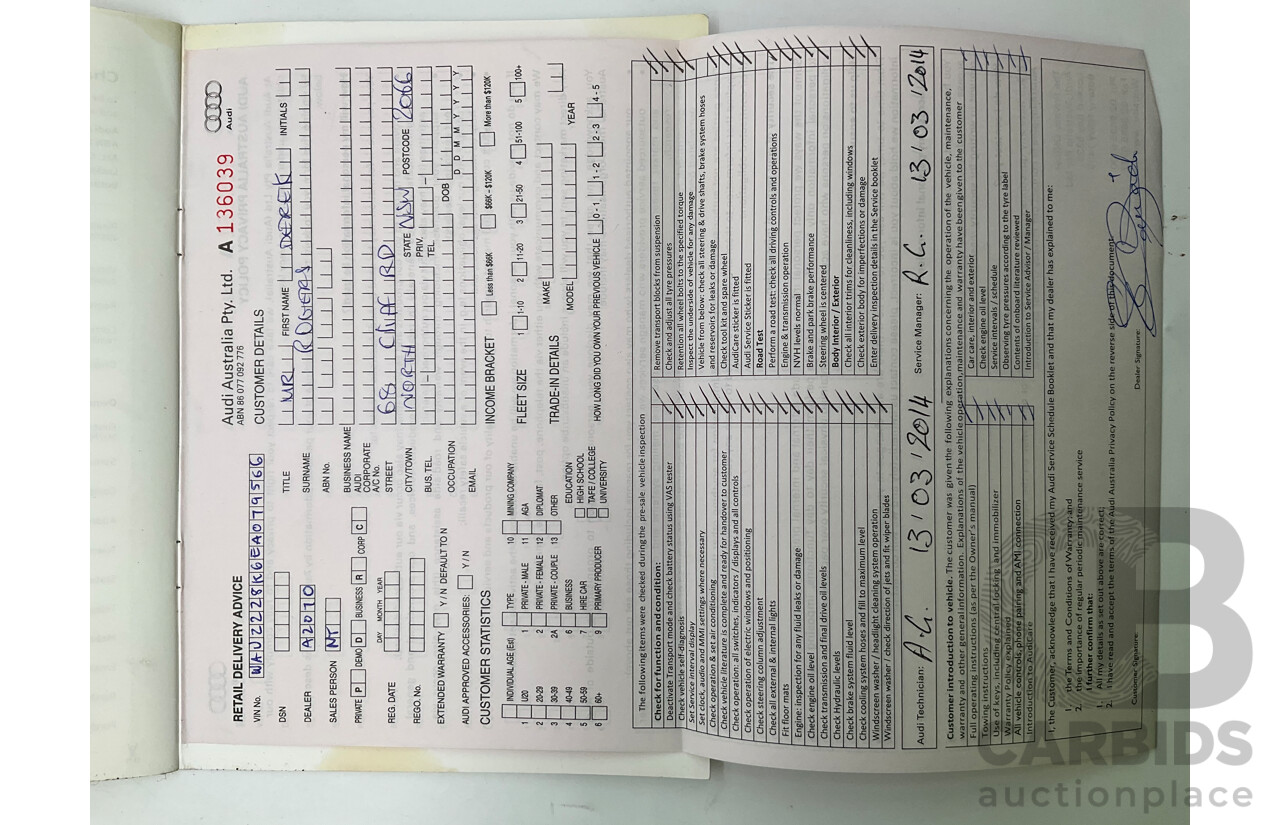 Audi
RETAIL DELIVERY ADVICE
Audi Australia Pty. Ltd. A 136039
ABN 86 077 092 776
VIN No.
CUSTOMER DETAILS
DSN
DEALER A2070
SALES PERSON NT
PRIVATE P DEMO D BUSINESS R CORP C
REG. DATE
DAY MONTH YEAR
REGO. No.
EXTENDED WARRANTY Y / N / DEFAULT TO N
AUDI APPROVED ACCESSORIES: Y / N
TITLE MR FIRST NAME DEREK INITIALS
SURNAME ROGERS
ABN No.
BUSINESS NAME
AUDI CORPORATE A/C No.
STREET 68 Cliff RD
CITY/TOWN NORTH STATE NSW POSTCODE 2066
BUS. TEL. PRIV. TEL.
OCCUPATION DOB
D D M M Y Y Y Y
EMAIL
CUSTOMER STATISTICS
INDIVIDUAL AGE (Est)
1 U20
2 20-29
3 30-39
4 40-49
5 50-59
6 60+
TYPE
1 PRIVATE - MALE
2 PRIVATE - FEMALE
2A PRIVATE - COUPLE
6 BUSINESS
7 HIRE CAR
9 PRIMARY PRODUCER
10 MINING COMPANY
11 AGA
12 DIPLOMAT
13 OTHER
EDUCATION
HIGH SCHOOL
TAFE / COLLEGE
UNIVERSITY
INCOME BRACKET Less than $66K $66K – $120K More than $120K
FLEET SIZE 1 1-10 2 11-20 3 21-50 4 51-100 5 100+
TRADE-IN DETAILS MAKE
MODEL YEAR
HOW LONG DID YOU OWN YOUR PREVIOUS VEHICLE 0 - 1 1 - 2 2 - 3 4 - 5
The following items were checked during the pre-sale vehicle inspection
Check for function and condition:
Deactivate Transport mode and check battery status using VAS tester
Check vehicle self-diagnosis
Set Service interval display
Set clock, audio and MMI settings where necessary
Check operation & set air conditioning
Check vehicle literature is complete and ready for handover to customer
Check operation: all switches, indicators / displays and all controls
Check operation of electric windows and positioning
Check steering column adjustment
Check all external & internal lights
Fit floor mats
Engine: inspection for any fluid leaks or damage
Check engine oil level
Check transmission and final drive oil levels
Check Hydraulic levels
Check brake system fluid level
Check cooling system hoses and fill to maximum level
Windscreen washer / headlight cleaning system operation
Windscreen washer / check direction of jets and fit wiper blades
Remove transport blocks from suspension
Check and adjust all tyre pressures
Retention all wheel bolts to the specified torque
Inspect the underside of vehicle for any damage
Vehicle from below: check all steering & drive shafts, brake system hoses
and reservoirs for leaks or damage
Check tool kit and spare wheel
AudiCare sticker is fitted
Audi Service Sticker is fitted
Road Test
Perform a road test: check all driving controls and operations
Engine & transmission operation
NVH levels normal
Brake and park brake performance
Steering wheel is centered
Body Interior / Exterior
Check all interior trims for cleanliness, including windows
Check exterior body for imperfections or damage
Enter delivery inspection details in the Service booklet
Audi Technician: A.G. 13 03 2014 Service Manager: R.C. 13 03 2014
Customer introduction to vehicle. The customer was given the following explanations concerning the operation of the vehicle, maintenance,
warranty and other general information. Explanations of the vehicle operation, maintenance and warranty have been given to the customer
Full operating instructions (as per the Owner's manual)
Towing instructions
Use of keys, including central locking and immobilizer
Warranty Policy explained
All vehicle controls, phone pairing and AMI connection
Introduction to AudiCare
Car care, interior and exterior
Check engine oil level
Service intervals / schedule
Observing tyre pressures according to the tyre label
Contents of onboard literature reviewed
Introduction to Service Advisor / Manager
I, the Customer, acknowledge that I have received my Audi Service Schedule Booklet and that my dealer has explained to me:
1. the Terms and Conditions of Warranty; and
2. the importance of regular periodic maintenance service
I further confirm that:
1. All my details as set out above are correct;
2. I have read and accept the terms of the Audi Australia Privacy Policy on the reverse side of this document
Customer Signature: Dealer Signature:
CARBIDS
auctionplace